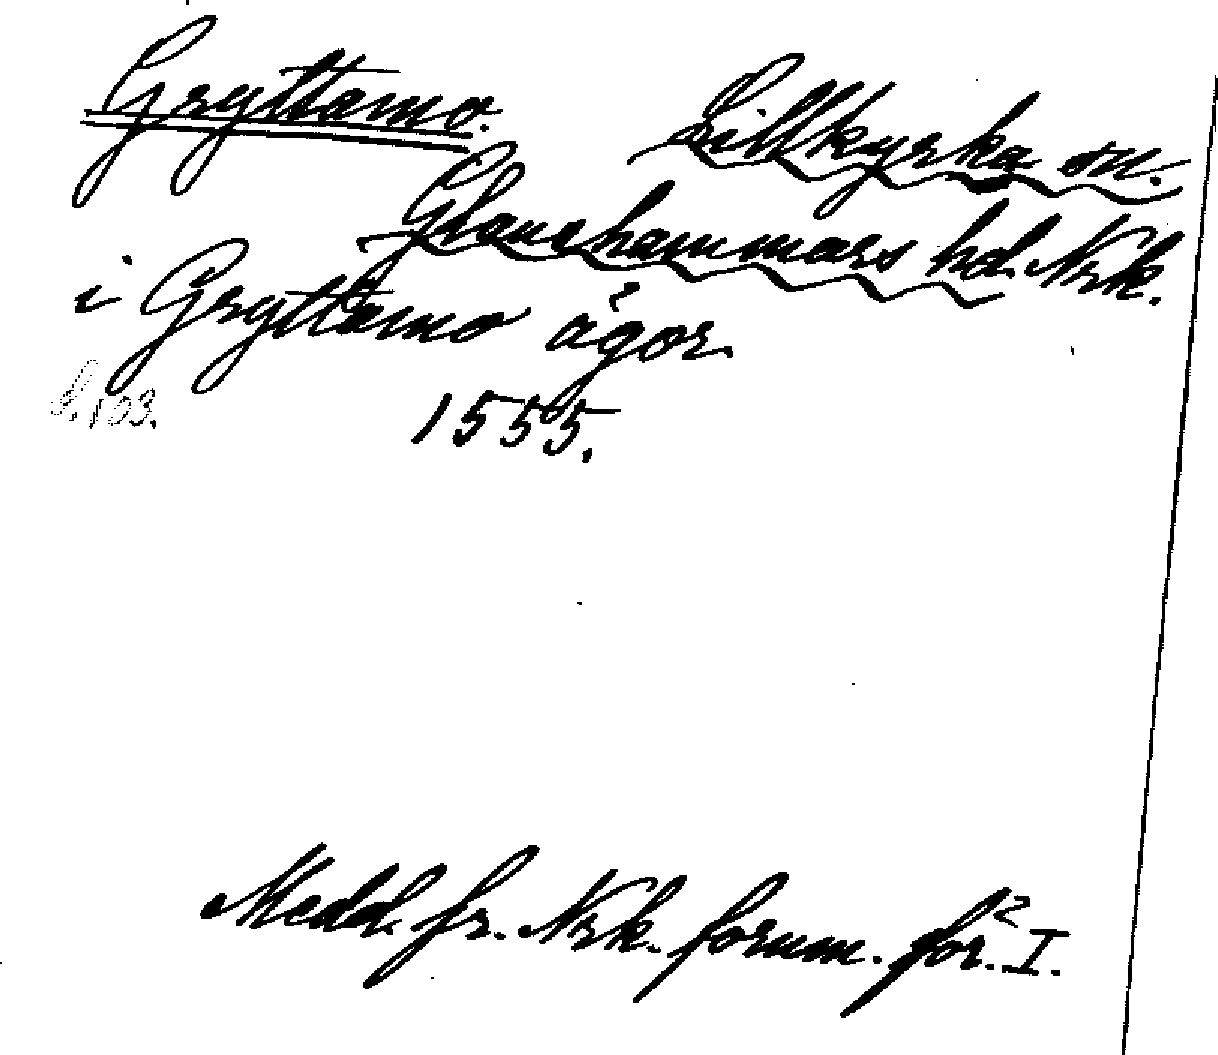 Gryttomo.
Lillkyrka sn.
Glanshammars hd. Nrk.
i Gryttomo ägor
s. 103.
1555.
Medd. fr. Nrk. fornm. för. I.